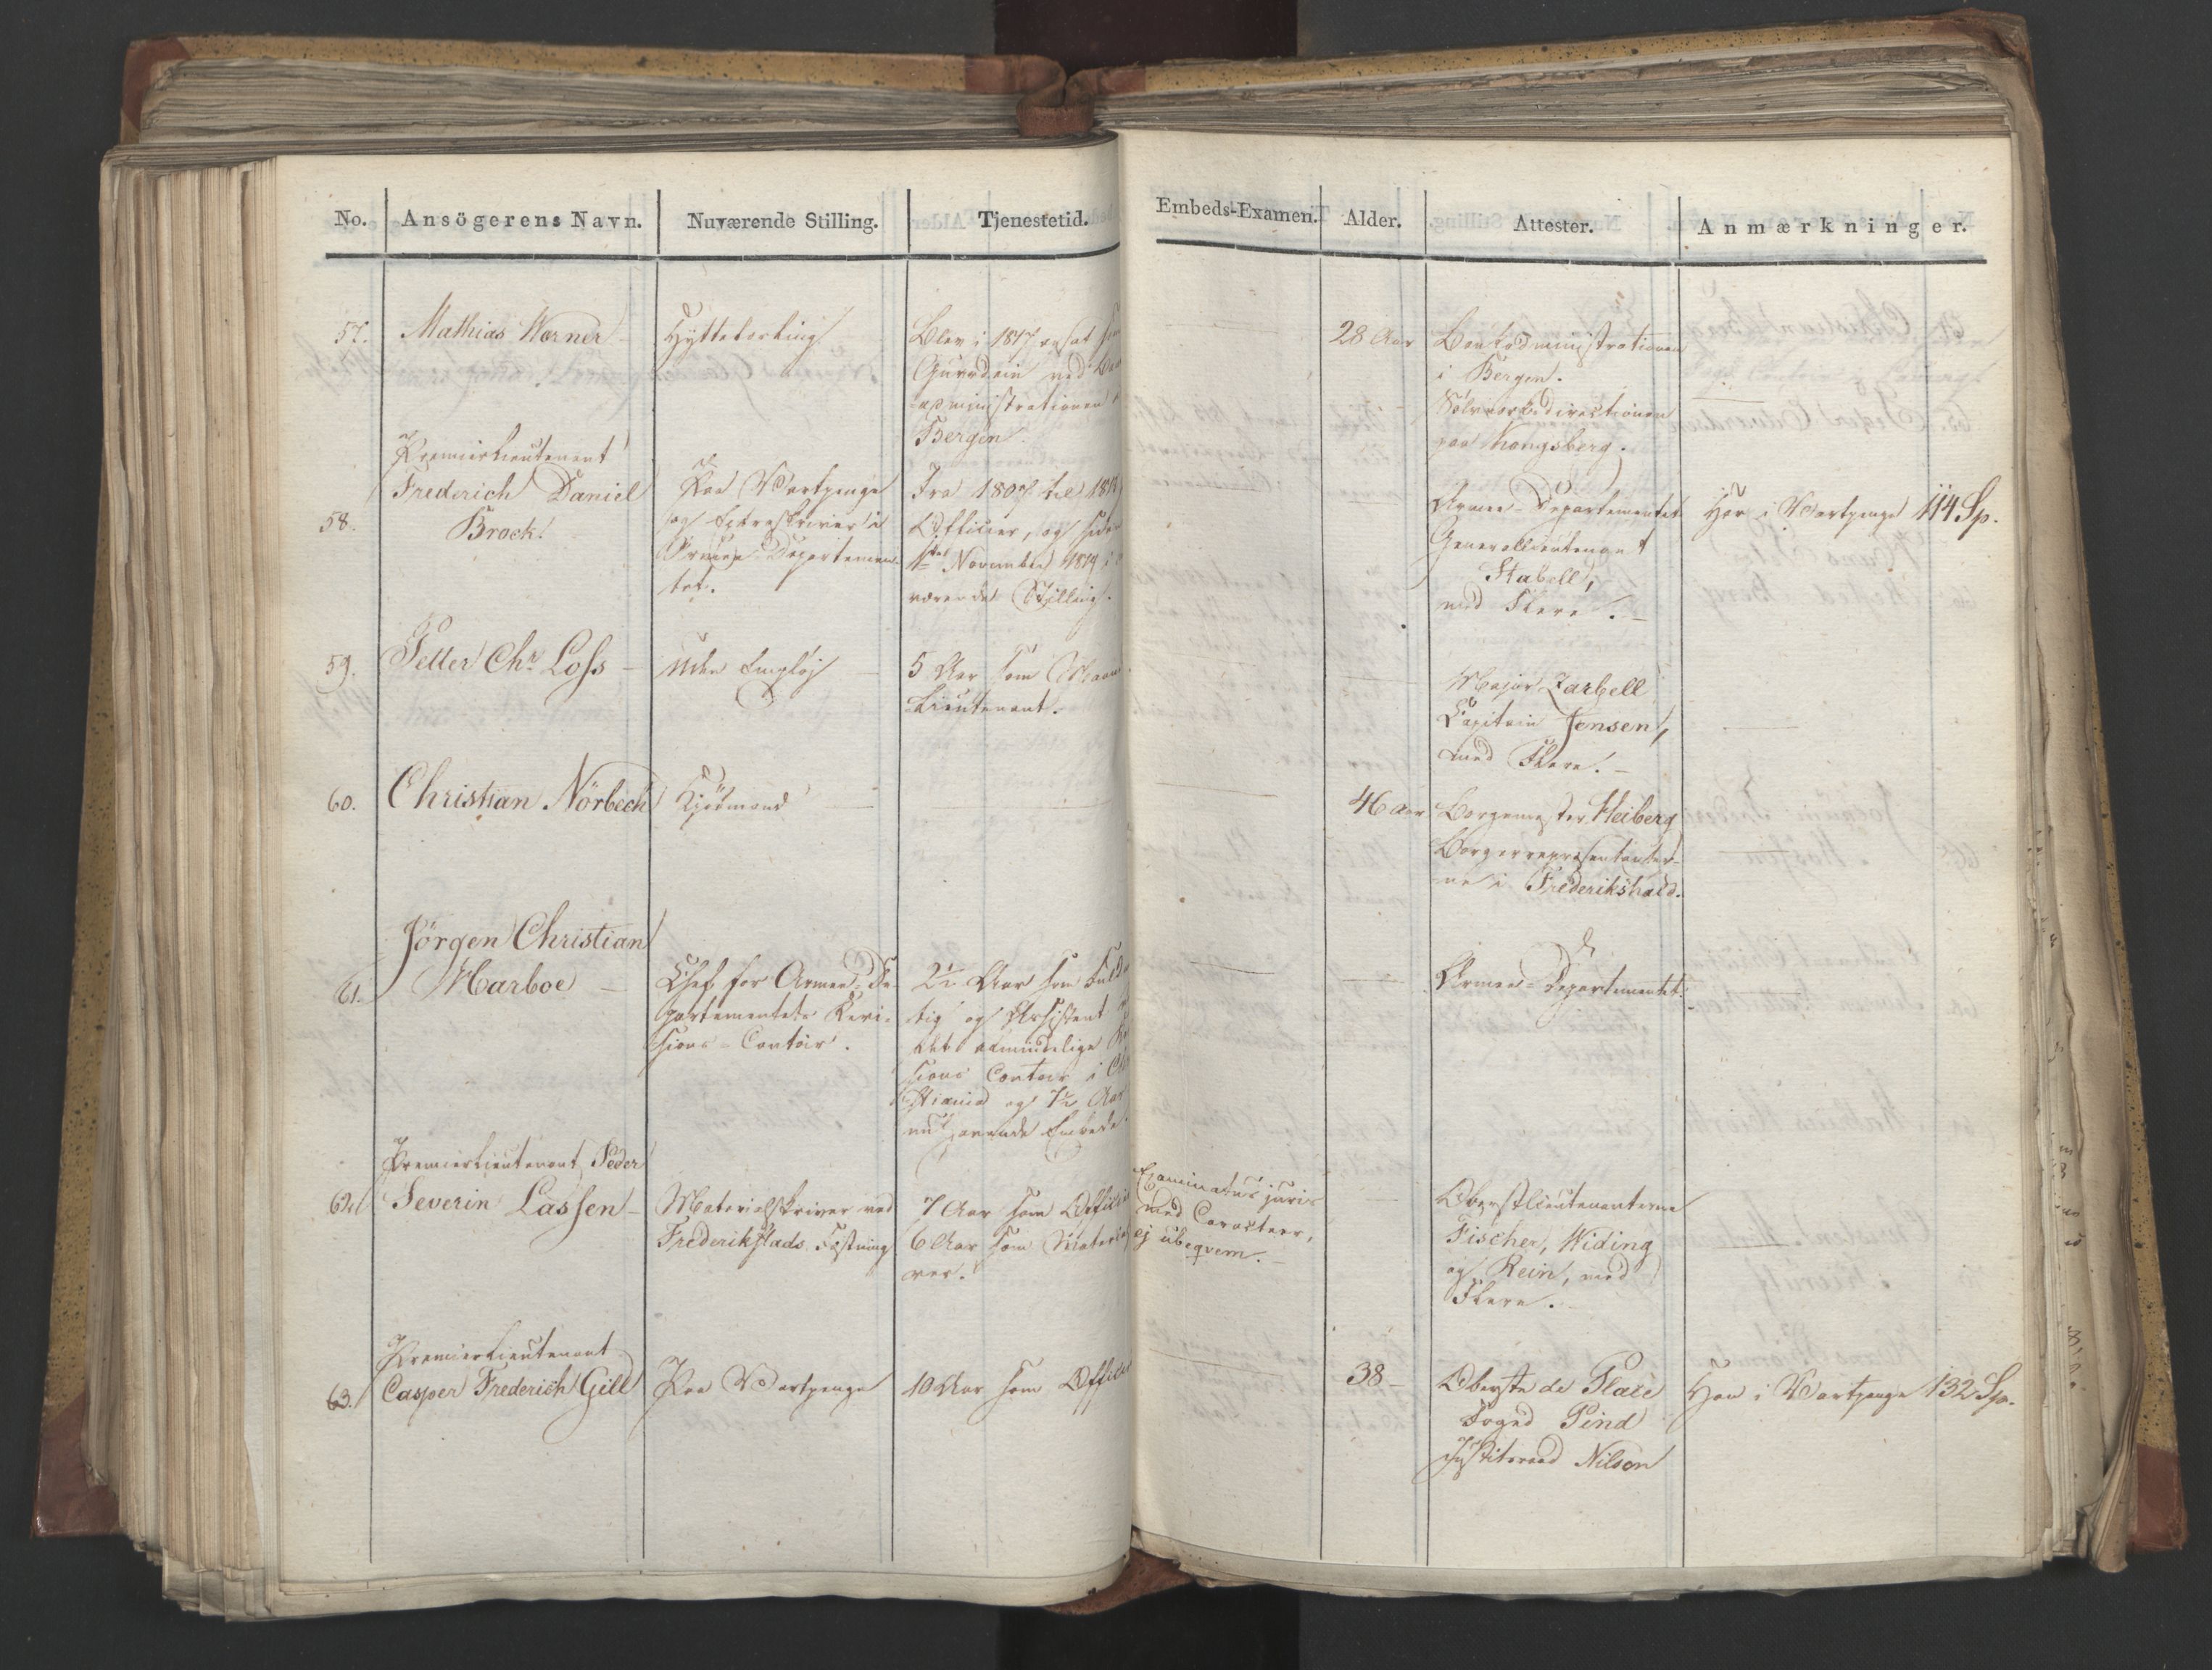 No. Ansögerens Navn. Nuværende Stilling. Tjenestetid. Embeds-Examen. Alder. Attester. Anmærkninger.
57. Mathias Werner
Blev i 1817 ansat som
Guardein ved
administrationen
Bergen.
28 Aar
Bankadministrationen
i Bergen.
Sölvverksdirectionen
paa Kongsberg.
58.
Premierlieutenant
Frederich Daniel
Brock.
Paa Vartpenge
og Extraskriver i
Armee-Departemen-
tet.
Fra 1807 til 1818
Officier, og siden
1ste November 1819 i
værende Stilling.
Armee-Departementet
Generallieutenant
Stabell,
med Flere. -
Har i Vartpenge 114 Sp.
59. Petter Chr. Loss -
Uden Employ
5 Aar som
Lieutenant.
Major Zarbell
Capitain Jensen,
med Flere. -
60. Christian Nörbech
Kjöbmand
46 Aar
Borgemester Heiberg
Borgerrepresentanter-
ne i Frederikshald.
61.
Jörgen Christian
Marboe -
Chef for Armee-De-
partementets Revi-
sions-Contoir.
2½ Aar som Fuld
tig og Assistent
det almindelige Re
sions Contoir i Ch
stiania og 7½ Aar
nuhavende Embede.
Armee-Departementet.
62.
Premierlieutenant Peder
Severin Lassen -
Materialskriver ved
Frederikstads Fæstning
7 Aar som Officier
6 Aar som Material
ver.
Examinatus juris
med Caracteer,
ej ubeqvem. -
Oberstlieutenanterne
Fischer, Widing
og Rein, med
Flere.
63.
Premierlieutenant
Casper Frederich Gill
Paa Vartpenge
10 Aar som Officier
38 -
Oberste de Place
Foged Pind
Justitsraad Nilson
Har i Vartpenge 132 Sp.